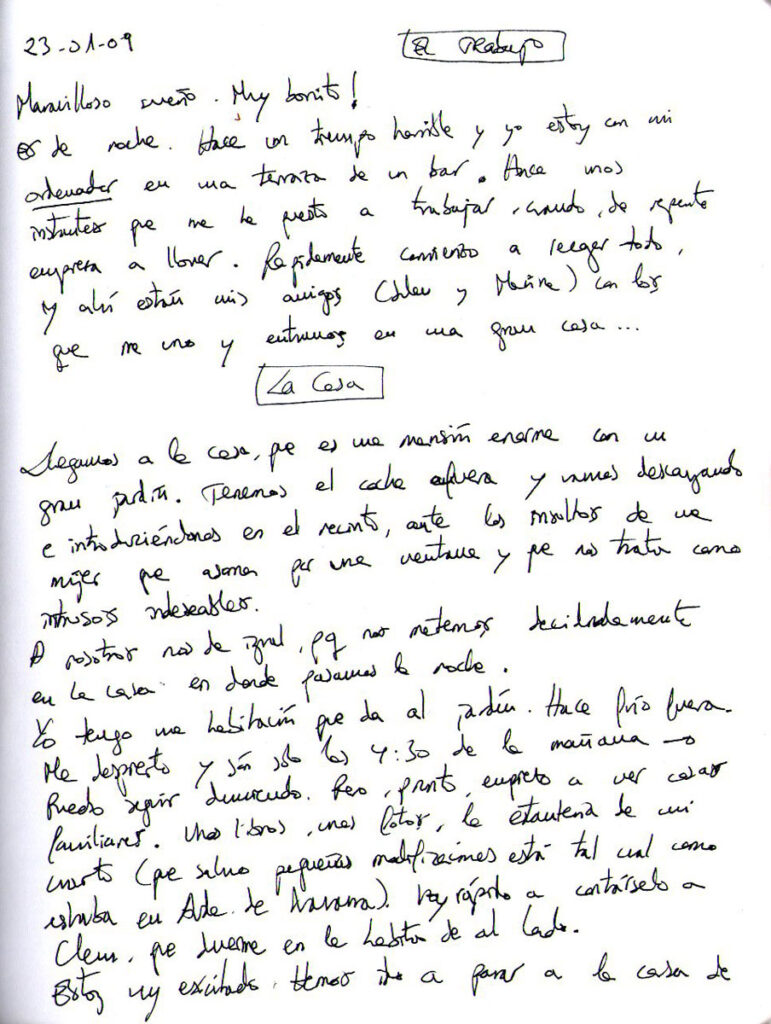 23-01-09 El trabajo
Maravilloso sueño. Muy bonito!
es de noche. Hace un tiempo horrible y yo estoy con mi
ordenador en una terraza de un bar. Hace unos
instantes que me he puesto a trabajar, cuando, de repente
empieza a llover. Rápidamente comienzo a recoger todo,
y ahí están mis amigos (y Marina) con los
que me uno y entramos en una gran casa...
La Casa
Llegamos a la casa, que es una mansión enorme con un
gran jardín. Tenemos el coche afuera y vamos descargando
e introduciéndonos en el recinto, ante los insultos de una
mujer que asoma por una ventana y que nos trata como
intrusos indeseables.
A nosotros nos da igual, pq nos metemos decididamente
en la casa en donde pasamos la noche.
Yo tengo una habitación que da al jardín. Hace frío fuera.
Me despierto y són sólo las 4:30 de la mañana →
Puedo seguir durmiendo. Pero, pronto, empiezo a ver cosas
familiares. Unos libros, unas fotos, la estantería de mi
cuarto (que salvo pequeñas modificaciones está tal cual como
estaba en Avda. de Navarra). Voy rápido a contárselo a
Clem, que duerme en la habita de al lado.
Estoy muy excitado. Hemos ido a parar a la casa de